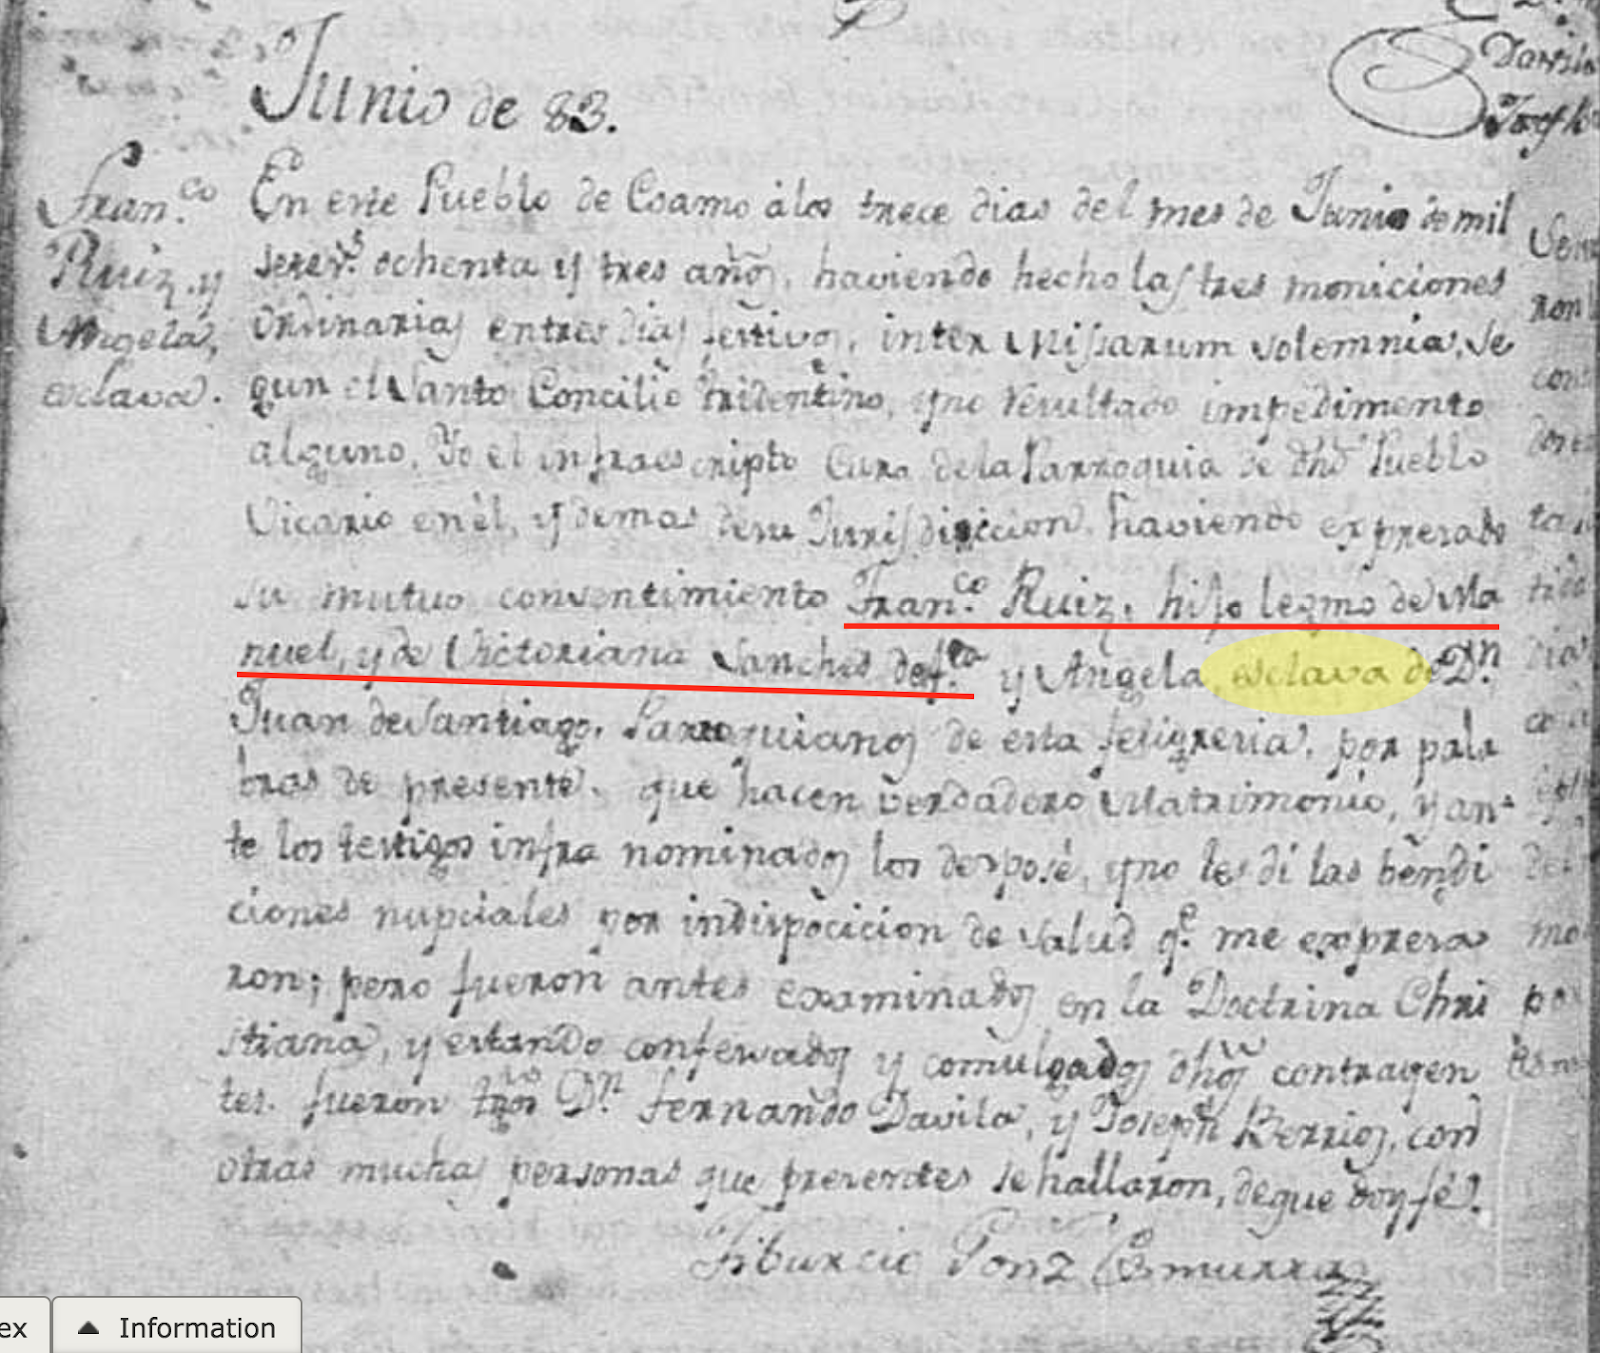 Junio de 83.
Fran.co
Ruiz, y
Angela,
esclava.
En este Pueblo de Coamo álos trece dias del mes de Junio de mil
seter.s ochenta y tres años, haviendo hecho las tres moniciones
ordinarias entres dias festivos, inter Missarum solemnia, se
gun el Santo Concilio tridentino, yno resultado impedimento
alguno, Yo el infraescripto Cura dela Parroquia de dhô Pueblo
Vicario enèl, y demas desu Jurisdiccion, haviendo expresado
su mutuo consentimiento Fran.co Ruiz, hijo legmo de Ma
nuel, y de Victoriana Sanches def.ta y Angela, esclava de D.n
Juan de Santiago, Parroquianos de esta feligresia, por pala
bras de presente, que hacen verdadero Matrimonio, y an
te los testigos infra nominados los desposé, yno les di las bendi
ciones nupciales por indispocicion de salud q.e me expresa
ron; pero fueron antes examinados en la Doctrina Chri
stiana, y estando confesados y comulgados dhos contrayen
tes. fueron tgos D.n Fernando Davila, y Joseph Berrios, con
otras muchas personas que presentes se hallaron, deque doy fé.
Tiburcio Ponz
Senz
ron
dores
mo
ex
Information